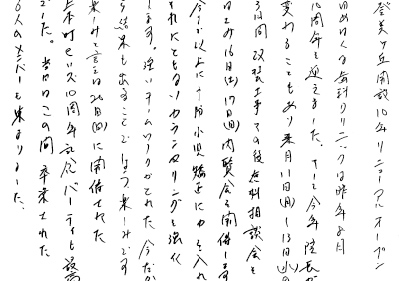 登美ヶ丘開設10年リニューアルオープン
は昨年8月
10周年を迎えました。そして今年院長が
変わることもあり来月11日(月)~13日(水)の
3日間改装工事その後無料相談会を
16日(土)17日(日)内覧会を開催します
今まで以上に予防小児矯正に力を入れ
それにともないカウンセリングを強化
します。強いチームワークがとれた今だか
ら結果も出ることでしょう。楽しみです
楽しみと言えば26日(日)に開催された
10周年記念パーティも最高
でした。当日はこの間卒業された
6人のメンバーも集まりました。